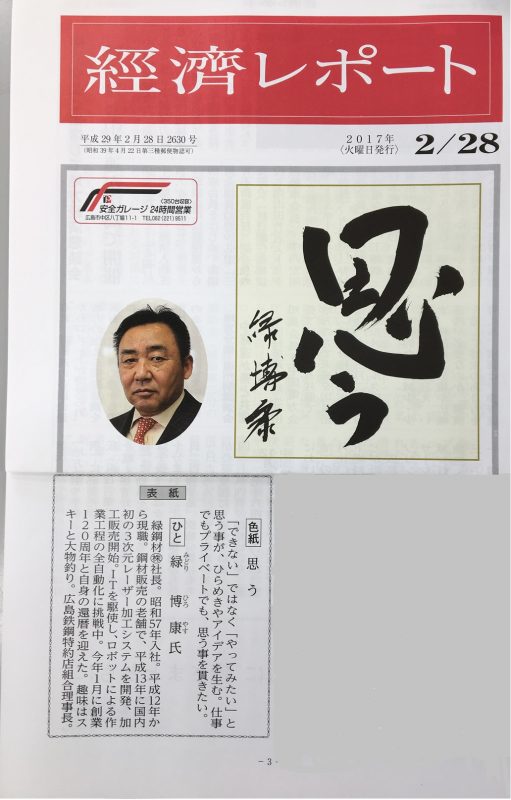 經濟レポート
平成29年2月28日2630号
(昭和39年4月22日第三種郵便物認可)
2017年
〈火曜日発行〉
2/28
〈350台収容〉
安全ガレージ 24時間営業
広島市中区八丁堀11-1 TEL082(221)9511
思う
緑博康
表紙
色紙 思う
「できない」ではなく「やってみたい」と
思う事が、ひらめきやアイデアを生む。仕事
でもプライベートでも、思う事を貫きたい。
ひと 緑 博康氏
みどり ひろ やす
緑鋼材㈱社長。昭和57年入社。平成12年か
ら現職。鋼材販売の老舗で、平成13年に国内
初の3次元レーザー加工システムを開発、加
工販売開始。ITを駆使し、ロボットによる作
業工程の全自動化に挑戦中。今年1月に創業
120周年と自身の還暦を迎えた。趣味はス
キーと大物釣り。広島鉄鋼特約店組合理事長。
-3-